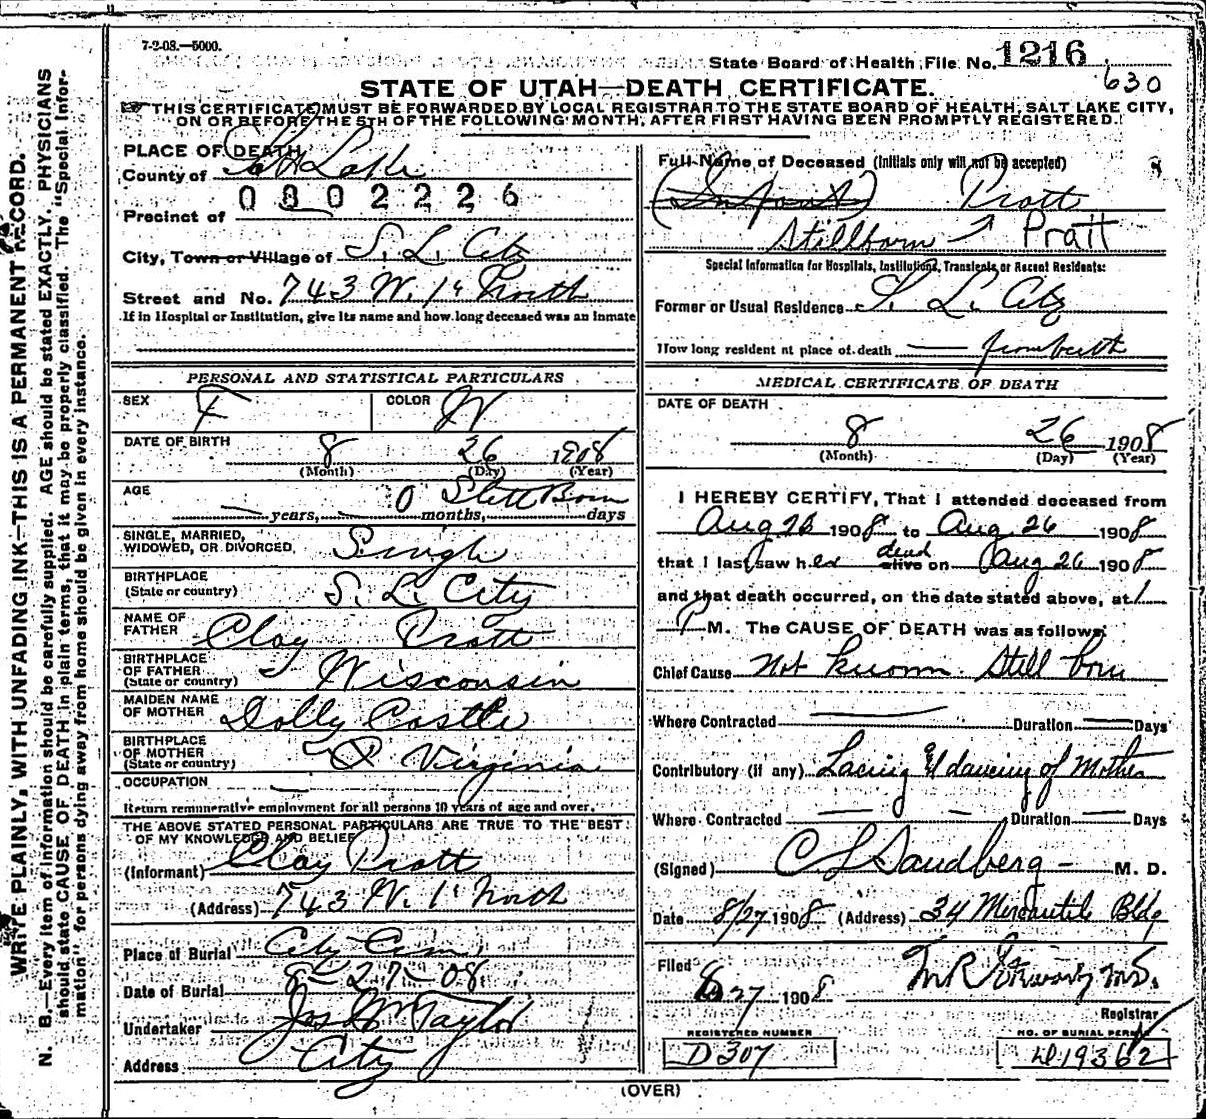 7-2-08.—5000.
State Board of Health File No. 1216
630
STATE OF UTAH—DEATH CERTIFICATE.
THIS CERTIFICATE MUST BE FORWARDED BY LOCAL REGISTRAR TO THE STATE BOARD OF HEALTH, SALT LAKE CITY,
ON OR BEFORE THE 5TH OF THE FOLLOWING MONTH, AFTER FIRST HAVING BEEN PROMPTLY REGISTERED.
WRITE PLAINLY, WITH UNFADING INK—THIS IS A PERMANENT RECORD.
N. B.—Every item of information should be carefully supplied. AGE should be stated EXACTLY. PHYSICIANS
should state CAUSE OF DEATH in plain terms, that it may be properly classified. The "Special Infor-
mation" for persons dying away from home should be given in every instance.
PLACE OF DEATH
County of S. Lake
0802226
Precinct of
City, Town or Village of S. L. City
Street and No. 743 W. 1st North
If in Hospital or Institution, give its name and how long deceased was an inmate
PERSONAL AND STATISTICAL PARTICULARS
SEX F COLOR W
DATE OF BIRTH 8 26 1908
(Month) (Day) (Year)
AGE — years, 0 months, Still Born days
SINGLE, MARRIED, WIDOWED, OR DIVORCED, Single
BIRTHPLACE (State or country) S. L. City
NAME OF FATHER Clay Pratt
BIRTHPLACE OF FATHER (State or country) Wisconsin
MAIDEN NAME OF MOTHER Dolly Castle
BIRTHPLACE OF MOTHER (State or country) Virginia
OCCUPATION —
Return remunerative employment for all persons 10 years of age and over.
THE ABOVE STATED PERSONAL PARTICULARS ARE TRUE TO THE BEST
OF MY KNOWLEDGE AND BELIEF
(Informant) Clay Pratt
(Address) 743 W. 1st North
Place of Burial City Cem,
Date of Burial 8-27-08
Undertaker Jos Wm Taylor
Address City
Full Name of Deceased (Initials only will not be accepted)
(Infant) Pratt
Stillborn Pratt
Special Information for Hospitals, Institutions, Transients or Recent Residents:
Former or Usual Residence S. L. City
How long resident at place of death — from birth
MEDICAL CERTIFICATE OF DEATH
DATE OF DEATH
8 26 1908
(Month) (Day) (Year)
I HEREBY CERTIFY, That I attended deceased from
Aug 26 1908 to Aug 26 1908
that I last saw her dead alive on Aug 26 1908
and that death occurred, on the date stated above, at 1
P M. The CAUSE OF DEATH was as follows:
Chief Cause Not known. Still born
Where Contracted — Duration — Days
Contributory (if any) Lacing & dancing of Mother
Where Contracted — — Duration — Days
(Signed) C L Sandberg — M. D.
Date 8/27 1908 (Address) 34 Mercantile Bldg
Filed 8 27 1908
Registrar
REGISTERED NUMBER NO. OF BURIAL PERMIT
D307 D19362
(OVER)